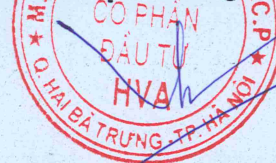 CỔ PHẦN
ĐẦU TƯ
HVA
M.
C.P
★ Q. HAI BÀ TRƯNG - TP. HÀ NỘI ★